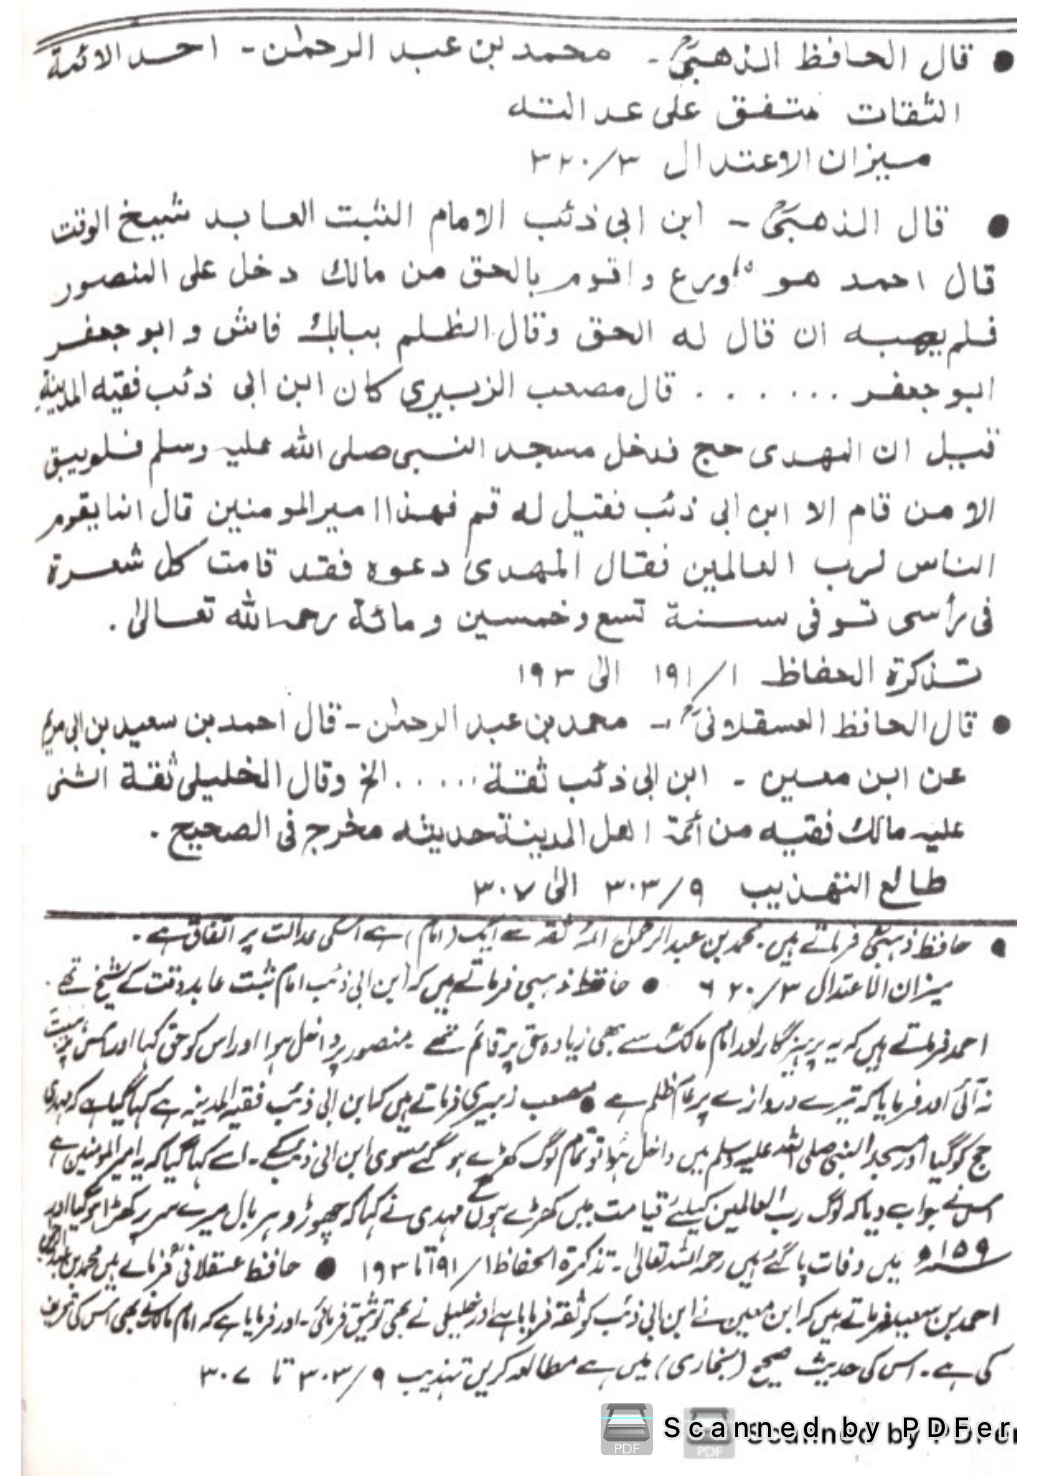 ● قال الحافظ الذهبیؒ ۔ محمد بن عبد الرحمٰن ۔ احد الائمة
الثقات متفق علی عدالته
میزان الاعتدال ۳/ ۳۲۰
● قال الذهبیؒ ۔ ابن ابی ذئب الامام الثبت العابد شیخ الوقت
قال احمد هو اورع واقوم بالحق من مالك دخل علی المنصور
فلم یهبه ان قال له الحق وقال الظلم ببابك فاش و ابو جعفر
ابو جعفر . . . . . . قال مصعب الزبیری کان ابن ابی ذئب فقیه المدینة
قیل ان المهدی حج فدخل مسجد النبی صلی الله علیه وسلم فلم یبق
الا من قام الا ابن ابی ذئب فقیل له قم فهذا امیر المومنین قال انما یقوم
الناس لرب العالمین فقال المهدی دعوه فقد قامت کل شعرة
فی رأسی توفی سنة تسع وخمسین ومائة رحمه الله تعالیٰ .
تذکرة الحفاظ ۱/ ۱۹۱ الیٰ ۱۹۳
● قال الحافظ العسقلانیؒ ۔ محمد بن عبد الرحمٰن ۔ قال احمد بن سعید بن ابی مریم
عن ابن معین ۔ ابن ابی ذئب ثقة . . . . . الخ وقال الخلیلی ثقة اثنی
علیه مالك فقیه من أئمة اهل المدینة حدیثه مخرج فی الصحیح .
طالع التهذیب ۹/ ۳۰۳ الیٰ ۳۰۷
● حافظ ذہبیؒ فرماتے ہیں ۔ محمد بن عبد الرحمٰن ائمہ ثقہ سے ایک (امام) ہے اسکی عدالت پر اتفاق ہے ۔
میزان الاعتدال ۳/ ۶۲۰ ● حافظ ذہبی فرماتے ہیں کہ ابن ابی ذئب امام ثبت عابد وقت کے شیخ تھے ۔
احمد فرماتے ہیں کہ یہ پرہیزگار اور امام مالکؒ سے بھی زیادہ حق پر قائم تھے منصور پر داخل ہوا اور اس کو حق کہا اور اس پر ہیبت
نہ آئی اور فرمایا کہ تیرے دروازے پر عام ظلم ہے ● مصعب زبیری فرماتے ہیں کہ ابن ابی ذئب فقیہ المدینہ ہے کہا گیا ہے کہ مہدی
حج کو گیا اور مسجد النبی صلی اللہ علیہ وسلم میں داخل ہوا تو تمام لوگ کھڑے ہو گئے سوی ابن ابی ذئب کے ۔ اسے کہا گیا کہ یہ امیر المومنین ہے
اس نے جواب دیا کہ لوگ رب العالمین کیلئے قیامت میں کھڑے ہوں گے مہدی نے کہا کہ چھوڑو ہر بال میرے سر پر کھڑا ہو گیا اور
۱۵۹ھ میں وفات پا گئے ہیں رحمہ اللہ تعالیٰ ۔ تذکرة الحفاظ ۱/ ۱۹۱ تا ۱۹۳ ● حافظ عسقلانیؒ فرماتے ہیں محمد بن عبد الرحمٰن
احمد بن سعید فرماتے ہیں کہ ابن معین نے ابن ابی ذئب کو ثقہ فرمایا ہے اور خلیلی نے بھی توثیق فرمائی ۔ اور فرمایا ہے کہ امام مالکؒ نے بھی اس کی تعریف
کی ہے ۔ اس کی حدیث صحیح (بخاری) میں ہے مطالعہ کریں تہذیب ۹/ ۳۰۳ تا ۳۰۷
Scanned by PDFer
Scanned by PDFer